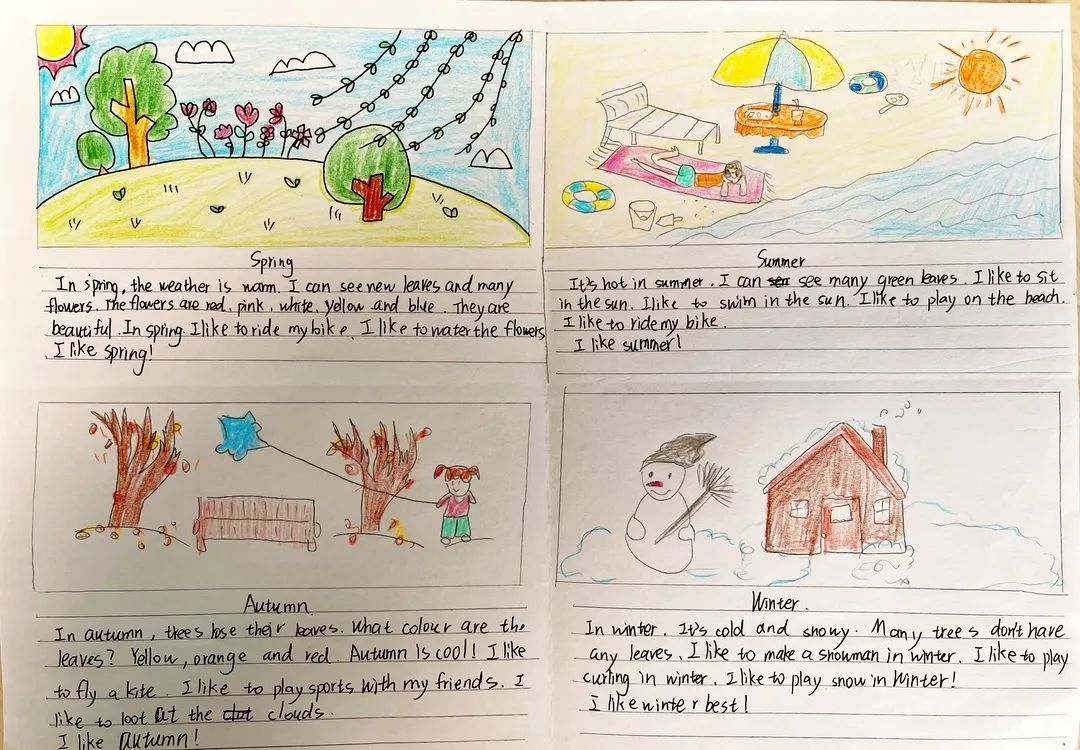 Spring
In spring, the weather is warm. I can see new leaves and many
flowers. The flowers are red, pink, white, yellow and blue. They are
beautiful. In spring. I like to ride my bike. I like to water the flowers
I like spring!
Summer
It's hot in summer. I can see see many green leaves. I like to sit
in the sun. I like to swim in the sun. I like to play on the beach.
I like to ride my bike.
I like summer!
Autumn
In autumn, trees lose their leaves. What colour are the
leaves? Yellow, orange and red. Autumn is cool! I like
to fly a kite. I like to play sports with my friends. I
like to loot at the clouds.
I like autumn!
Winter.
In winter. It's cold and snowy. Many trees don't have
any leaves. I like to make a snowman in winter. I like to play
curling in winter. I like to play snow in Winter!
I like winter best!